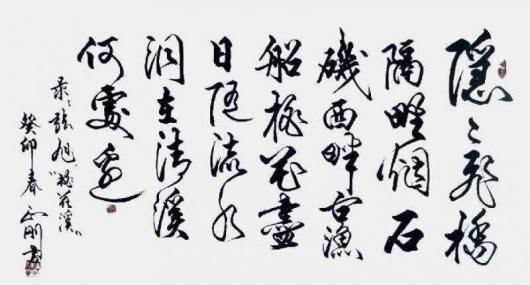 隱々飛橋
隔野烟石
磯西畔问漁
船桃花盡
日随流水
洞在清溪
何處邊
录张旭"桃花溪"
癸卯春 刚书